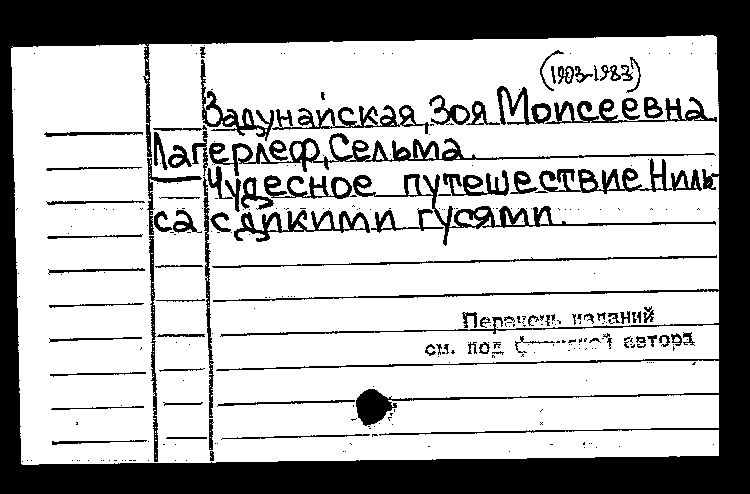 (1903-1983)
Задунайская, Зоя Моисеевна.
Лагерлеф, Сельма.
Чудесное путешествие Ниль-
са с дикими гусями.
Перечень изданий
см. под фамилией автора